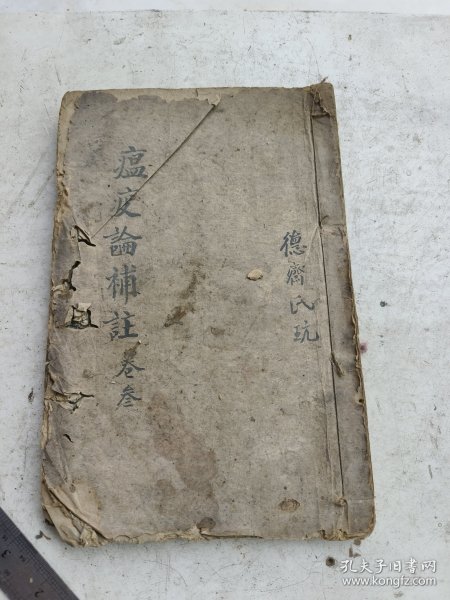 瘟疫論補註卷叁
德齋氏玩
孔夫子旧书网
www.kongfz.com